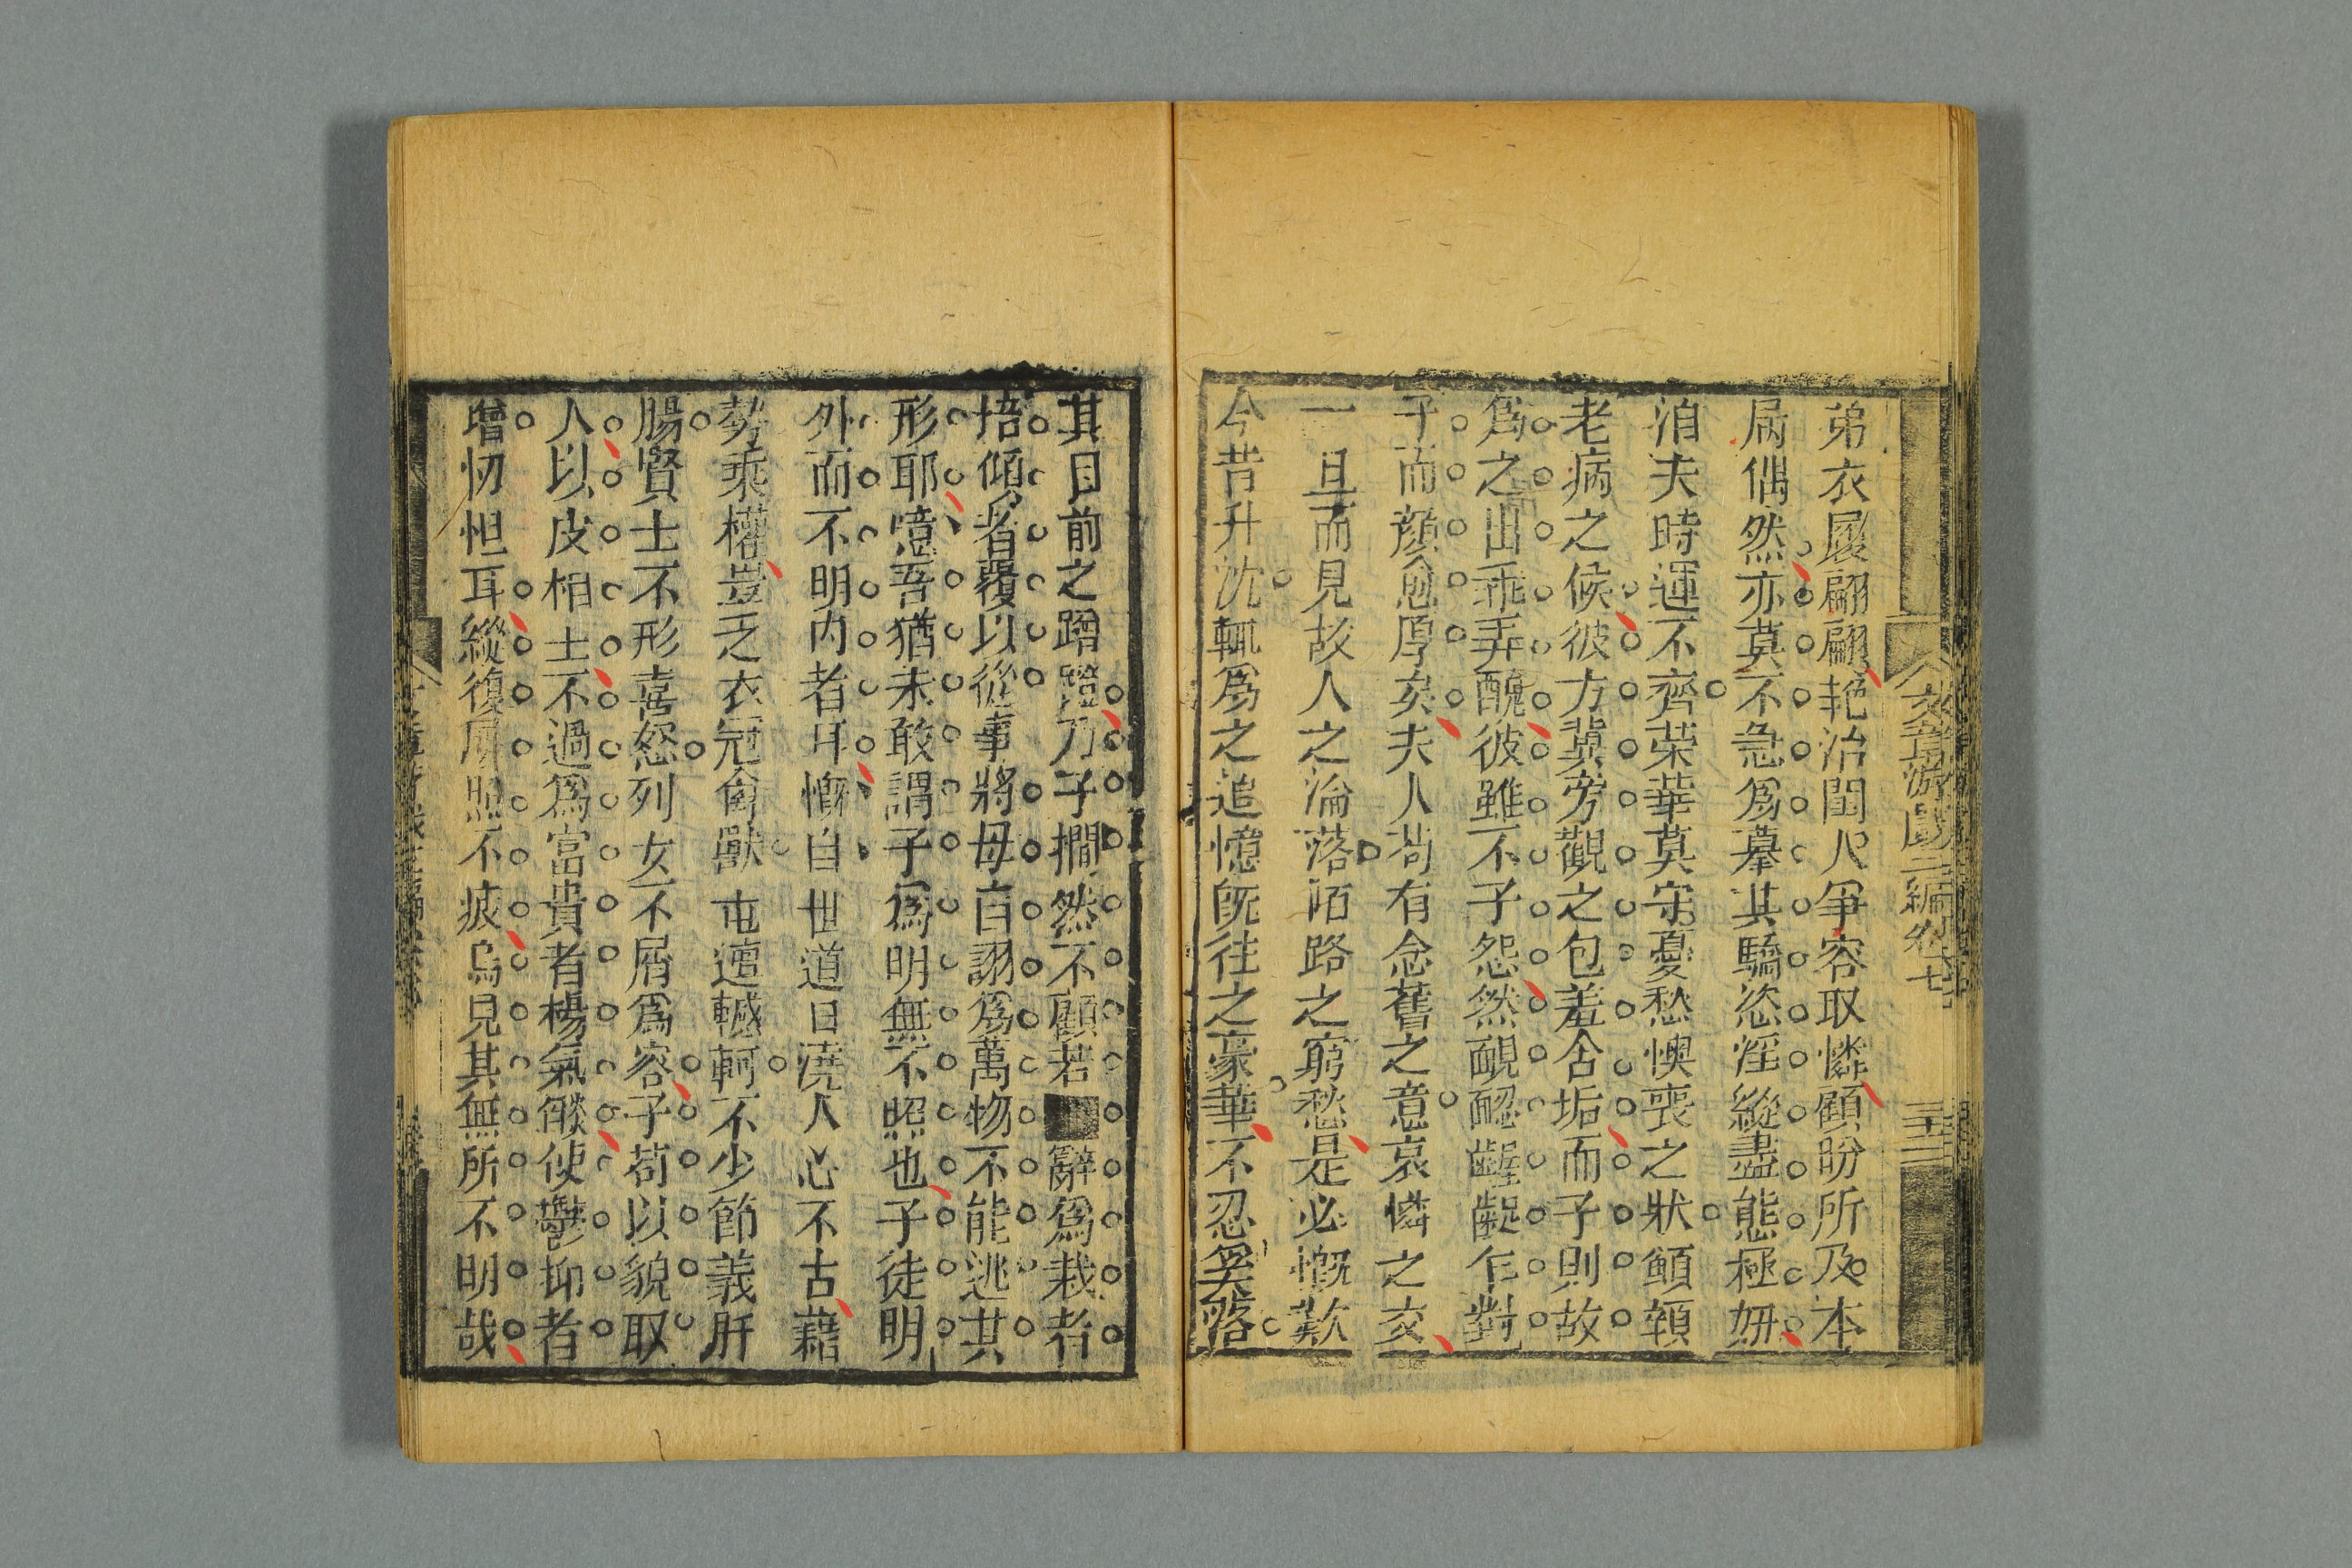 文章游戲二編卷七
三十二
弟衣屐翩翩艳冶閨人爭容取憐顧盼所及本
屬偶然亦莫不急爲摹其驕恣淫縱盡態極妍
洎夫時運不齊榮華莫守憂愁懊喪之狀顛顇
老病之候彼方冀旁觀之包羞含垢而子則故
爲之出乖弄醜彼雖不子怨然䩄䩄齷齪乍對
子而顏愈厚矣夫人苟有念舊之意哀憐之交
一旦而見故人之淪落陌路之窮愁是必慨歎
今昔升沈輒爲之追憶既往之豪華不忍奚落
其目前之蹭蹬乃子擱然不顧若辭爲栽者
培傾者覆以從事將毋盲謝爲萬物不能逃其
形耶噫吾猶未敢謂子爲明無不照也子徒明
外而不明内者耳慨自世道日澆人心不古藉
勢乘權豈乏衣冠禽獸屯邅轗軻不少節義肝
腸賢士不形喜怒列女不屑爲容子苟以貌取
人以皮相士不過爲富貴者楊氣燄使鬱抑者
增忉怛耳縱復屢照不疲烏見其無所不明哉